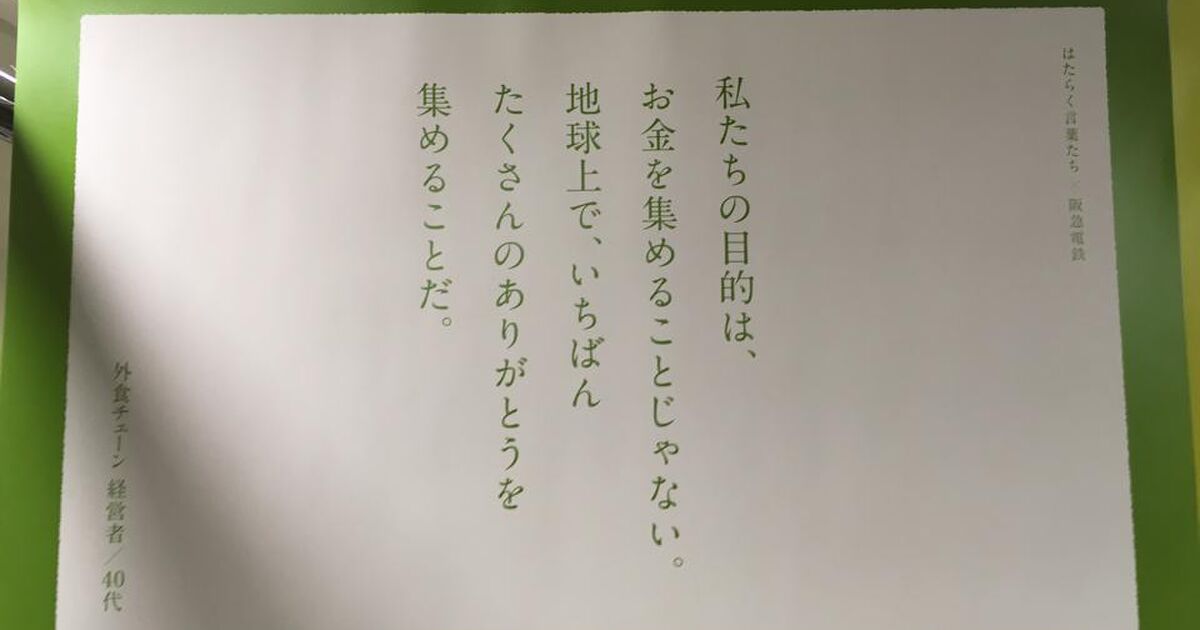 はたらく言葉たち × 阪急電鉄
私たちの目的は、
お金を集めることじゃない。
地球上で、いちばん
たくさんのありがとうを
集めることだ。
外食チェーン 経営者／40代